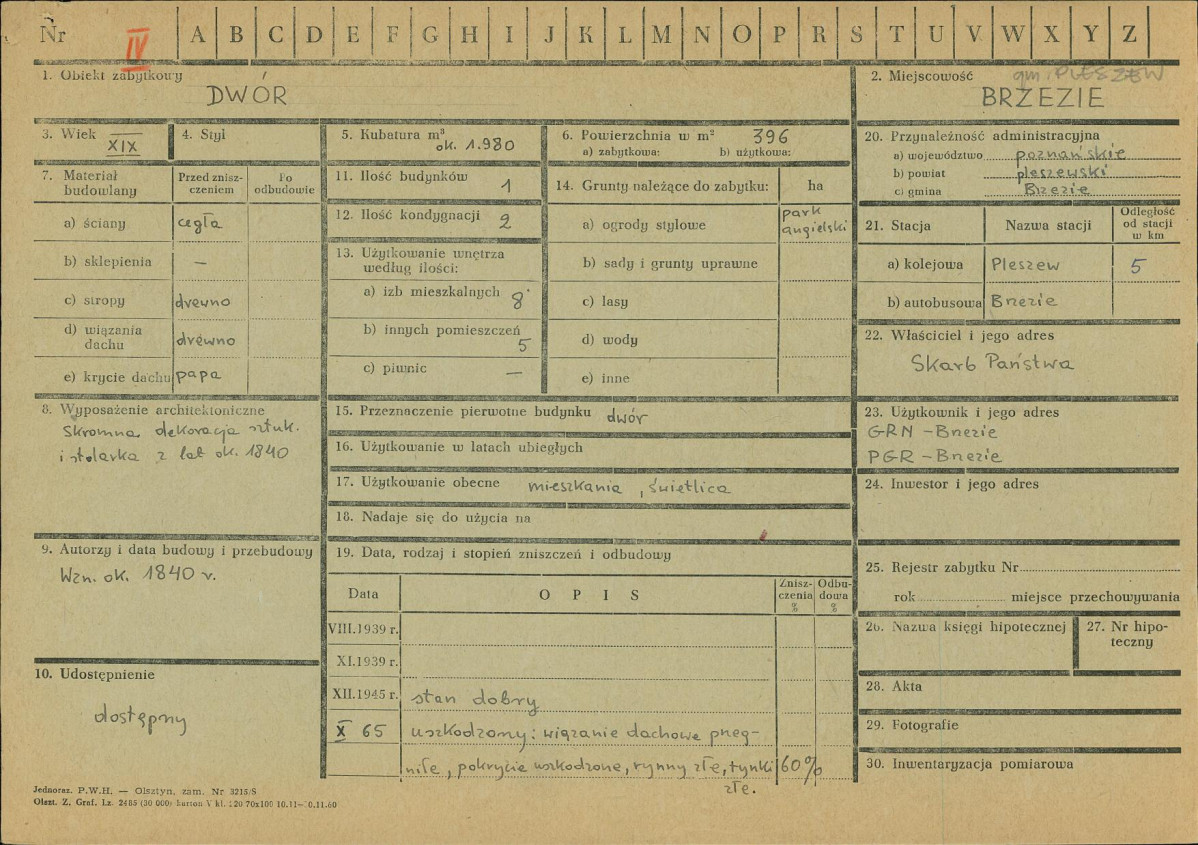 Nr IV A B C D E F G H I J K L M N O P R S T U V W X Y Z
1. Obiekt zabytkowy
DWÓR
2. Miejscowość gm. PLESZEW
BRZEZIE
3. Wiek XIX
4. Styl
5. Kubatura m³ ok. 1.980
6. Powierzchnia w m² 396
a) zabytkowa: b) użytkowa:
20. Przynależność administracyjna
a) województwo poznańskie
b) powiat pleszewski
c) gmina Brzezie
7. Materiał budowlany
Przed zniszczeniem
Po odbudowie
a) ściany cegła
b) sklepienia —
c) stropy drewno
d) wiązania dachu drewno
e) krycie dachu papa
11. Ilość budynków 1
12. Ilość kondygnacji 2
13. Użytkowanie wnętrza według ilości:
a) izb mieszkalnych 8
b) innych pomieszczeń 5
c) piwnic —
14. Grunty należące do zabytku: ha
a) ogrody stylowe park angielski
b) sady i grunty uprawne
c) lasy
d) wody
e) inne
21. Stacja
Nazwa stacji
Odległość od stacji w km
a) kolejowa Pleszew 5
b) autobusowa Brzezie
22. Właściciel i jego adres
Skarb Państwa
8. Wyposażenie architektoniczne
Skromna dekoracja sztuk.
i stolarka z lat ok. 1840
15. Przeznaczenie pierwotne budynku dwór
16. Użytkowanie w latach ubiegłych
17. Użytkowanie obecne mieszkania, świetlica
18. Nadaje się do użycia na
23. Użytkownik i jego adres
GRN - Brzezie
PGR - Brzezie
24. Inwestor i jego adres
9. Autorzy i data budowy i przebudowy
Wzn. ok. 1840 r.
10. Udostępnienie
dostępny
19. Data, rodzaj i stopień zniszczeń i odbudowy
Data
OPIS
Zniszczenia %
Odbudowa %
VIII.1939 r.
XI.1939 r.
XII.1945 r. stan dobry
X 65 uszkodzony: wiązanie dachowe przeg-
niłe, pokrycie uszkodzone, rynny złe, tynki 60%
złe.
25. Rejestr zabytku Nr
rok miejsce przechowywania
26. Nazwa księgi hipotecznej
27. Nr hipoteczny
28. Akta
29. Fotografie
30. Inwentaryzacja pomiarowa
Jednoraz. P.W.H. — Olsztyn, zam. Nr 3215/S
Olszt. Z. Graf. Lz. 2485 (30 000) karton V kl. 220 70x100 10.11—10.11.60